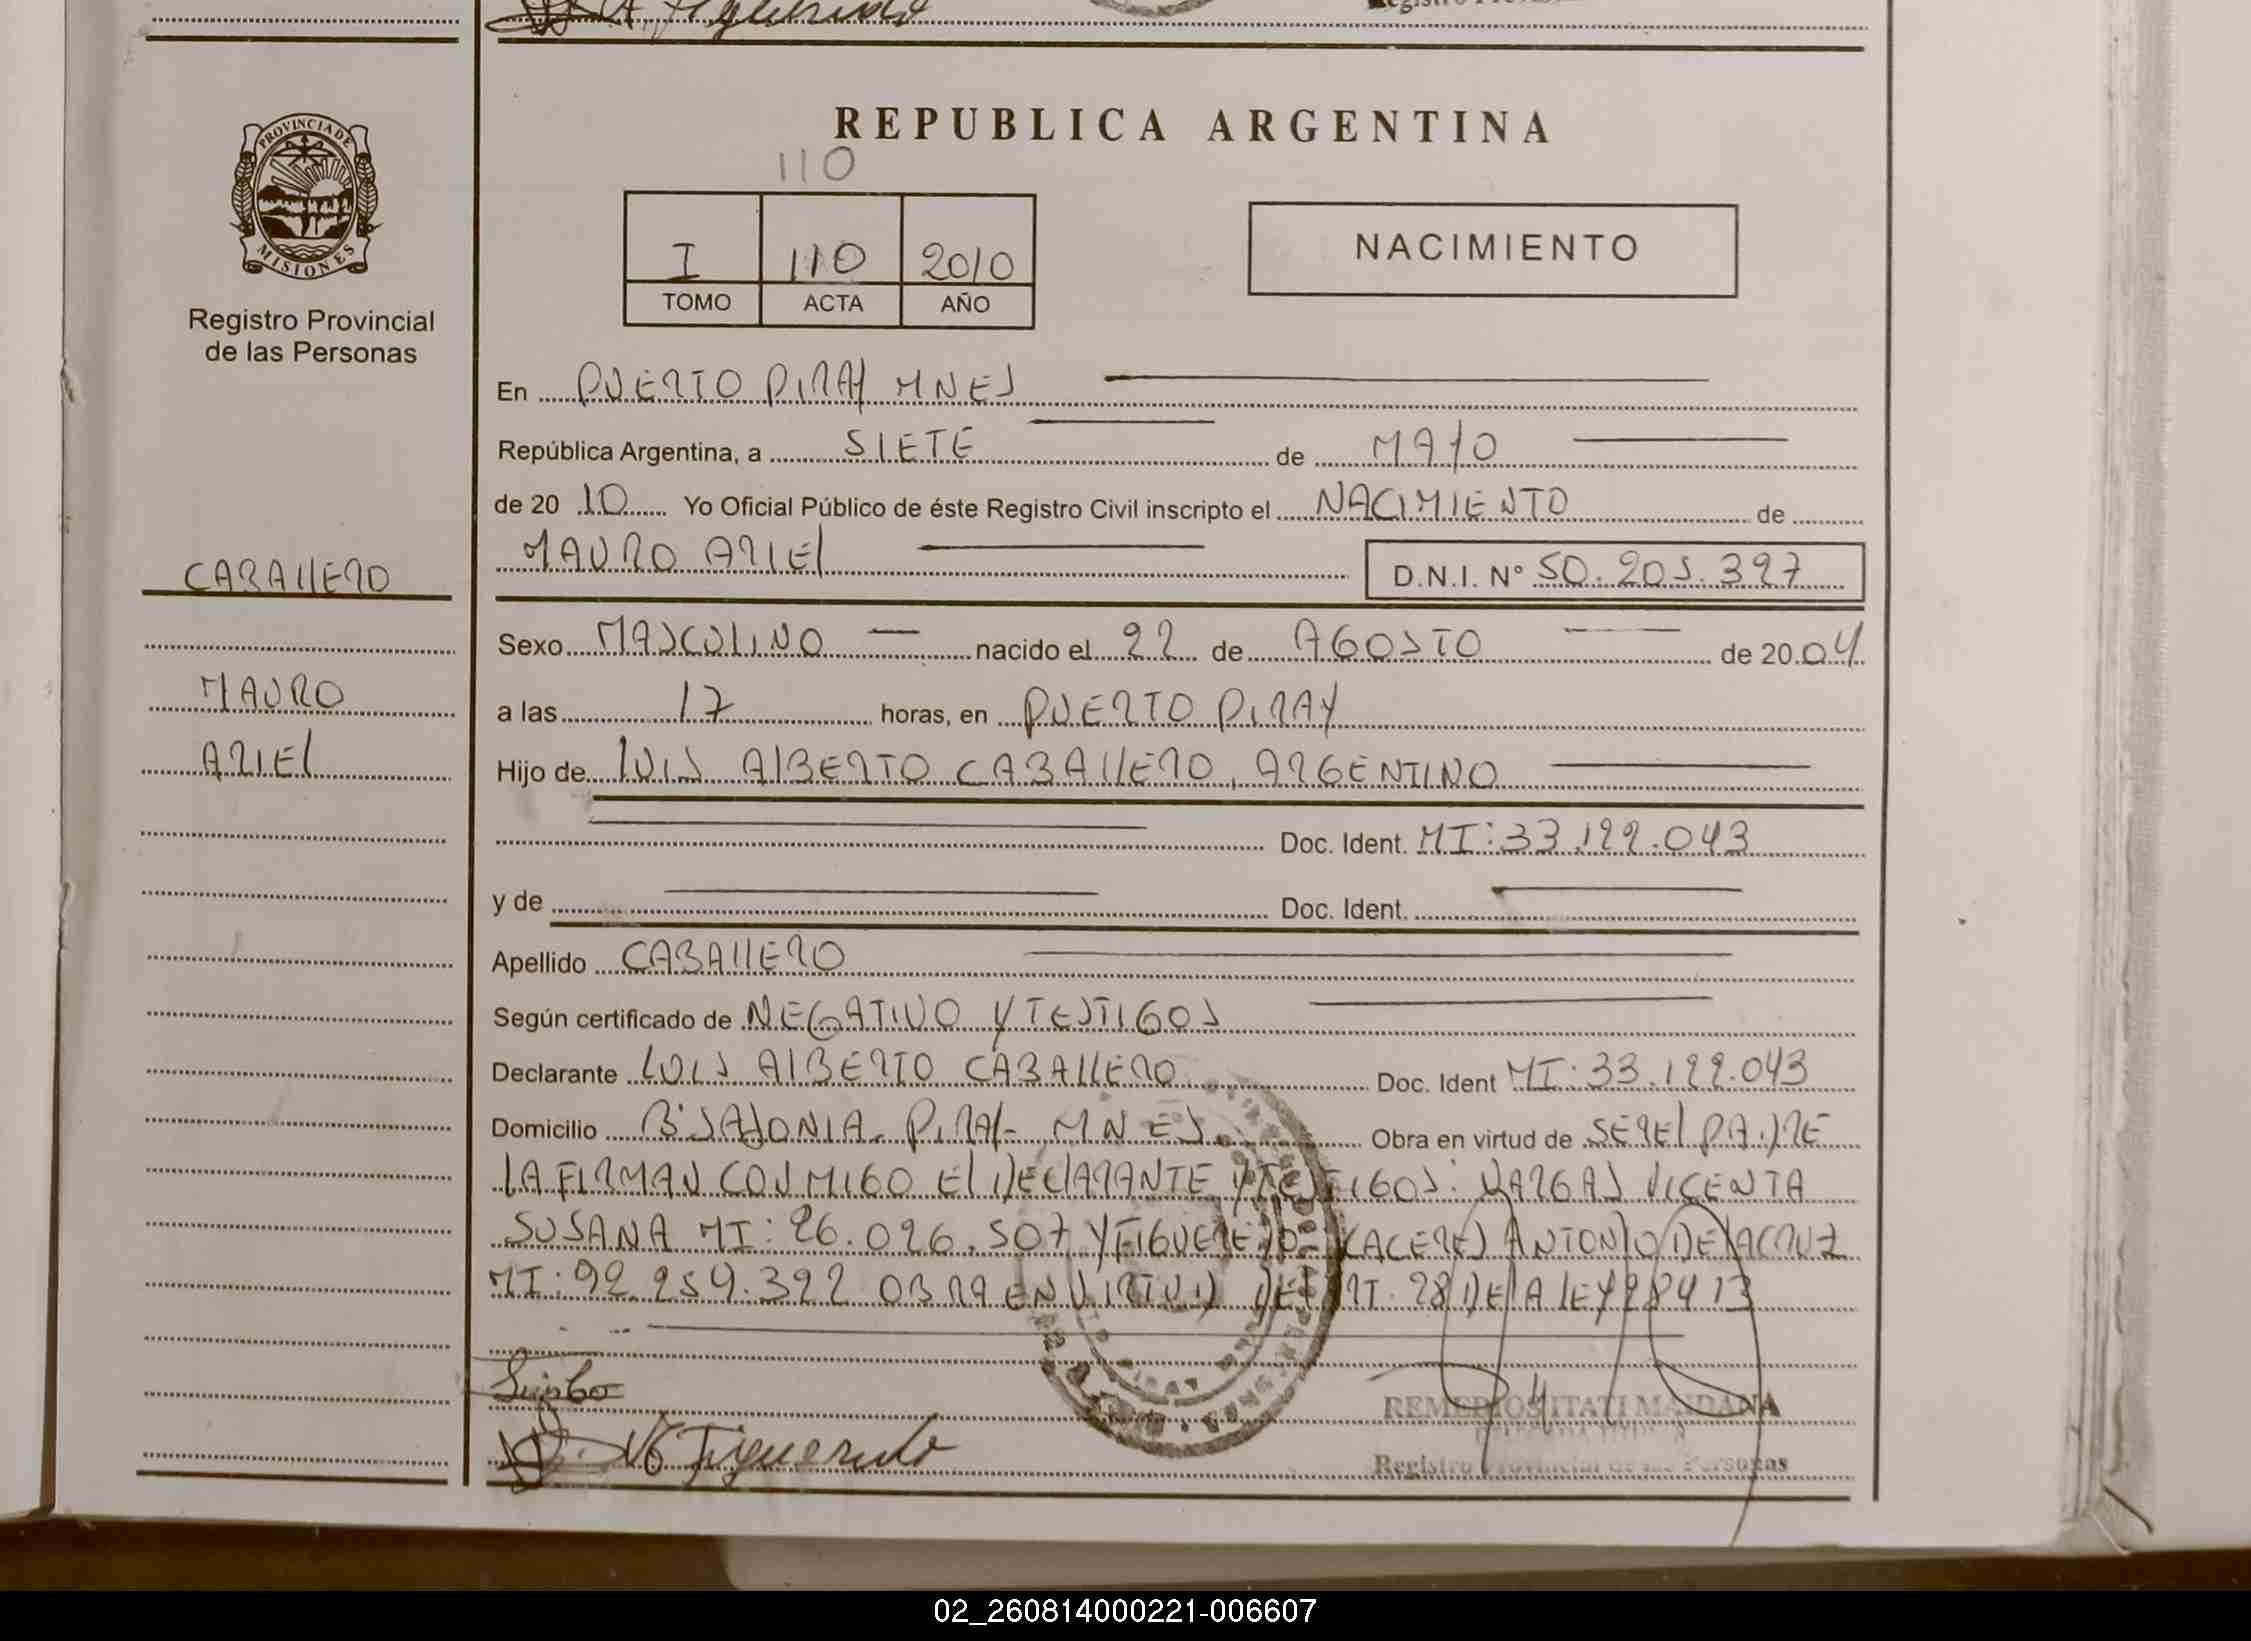 A. Figueredo
PROVINCIA DE
MISIONES
Registro Provincial
de las Personas
CABAllERO
MAURO
ARIEl
REPUBLICA ARGENTINA
110
I 110 2010
TOMO ACTA AÑO
NACIMIENTO
En PUERTO PIRAY MNES
República Argentina, a SIETE de MAYO
de 20 10 Yo Oficial Público de éste Registro Civil inscripto el NACIMIENTO de
MAURO ARIEl D.N.I. N° 50.205.397
Sexo MASCULINO nacido el 22 de AGOSTO de 20 04
a las 17 horas, en PUERTO PIRAY
Hijo de lUIS AlBERTO CABAllERO, ARGENTINO
Doc. Ident. MI: 33.199.043
y de Doc. Ident.
Apellido CABAllERO
Según certificado de NEGATIVO Y TESTIGOS
Declarante LUIS AlBERTO CABAllERO Doc. Ident MI: 33.199.043
Domicilio Bº SAJONIA - PIRAY - MNES Obra en virtud de SER El PADRE
lA FIRMAN CONMIGO El DEClARANTE Y TESTIGOS: VARGAS VICENTA
SUSANA MI: 26.096.507 Y FIGUEREDO CACERES ANTONIO DE lA CRUZ
MI: 92.959.392 OBRA EN VIRTUD DEl ART. 28 DE lA lEY 28413
Figueredo
REMEDIOS ITATI MAIDANA
Registro Provincial de las Personas
02_260814000221-006607